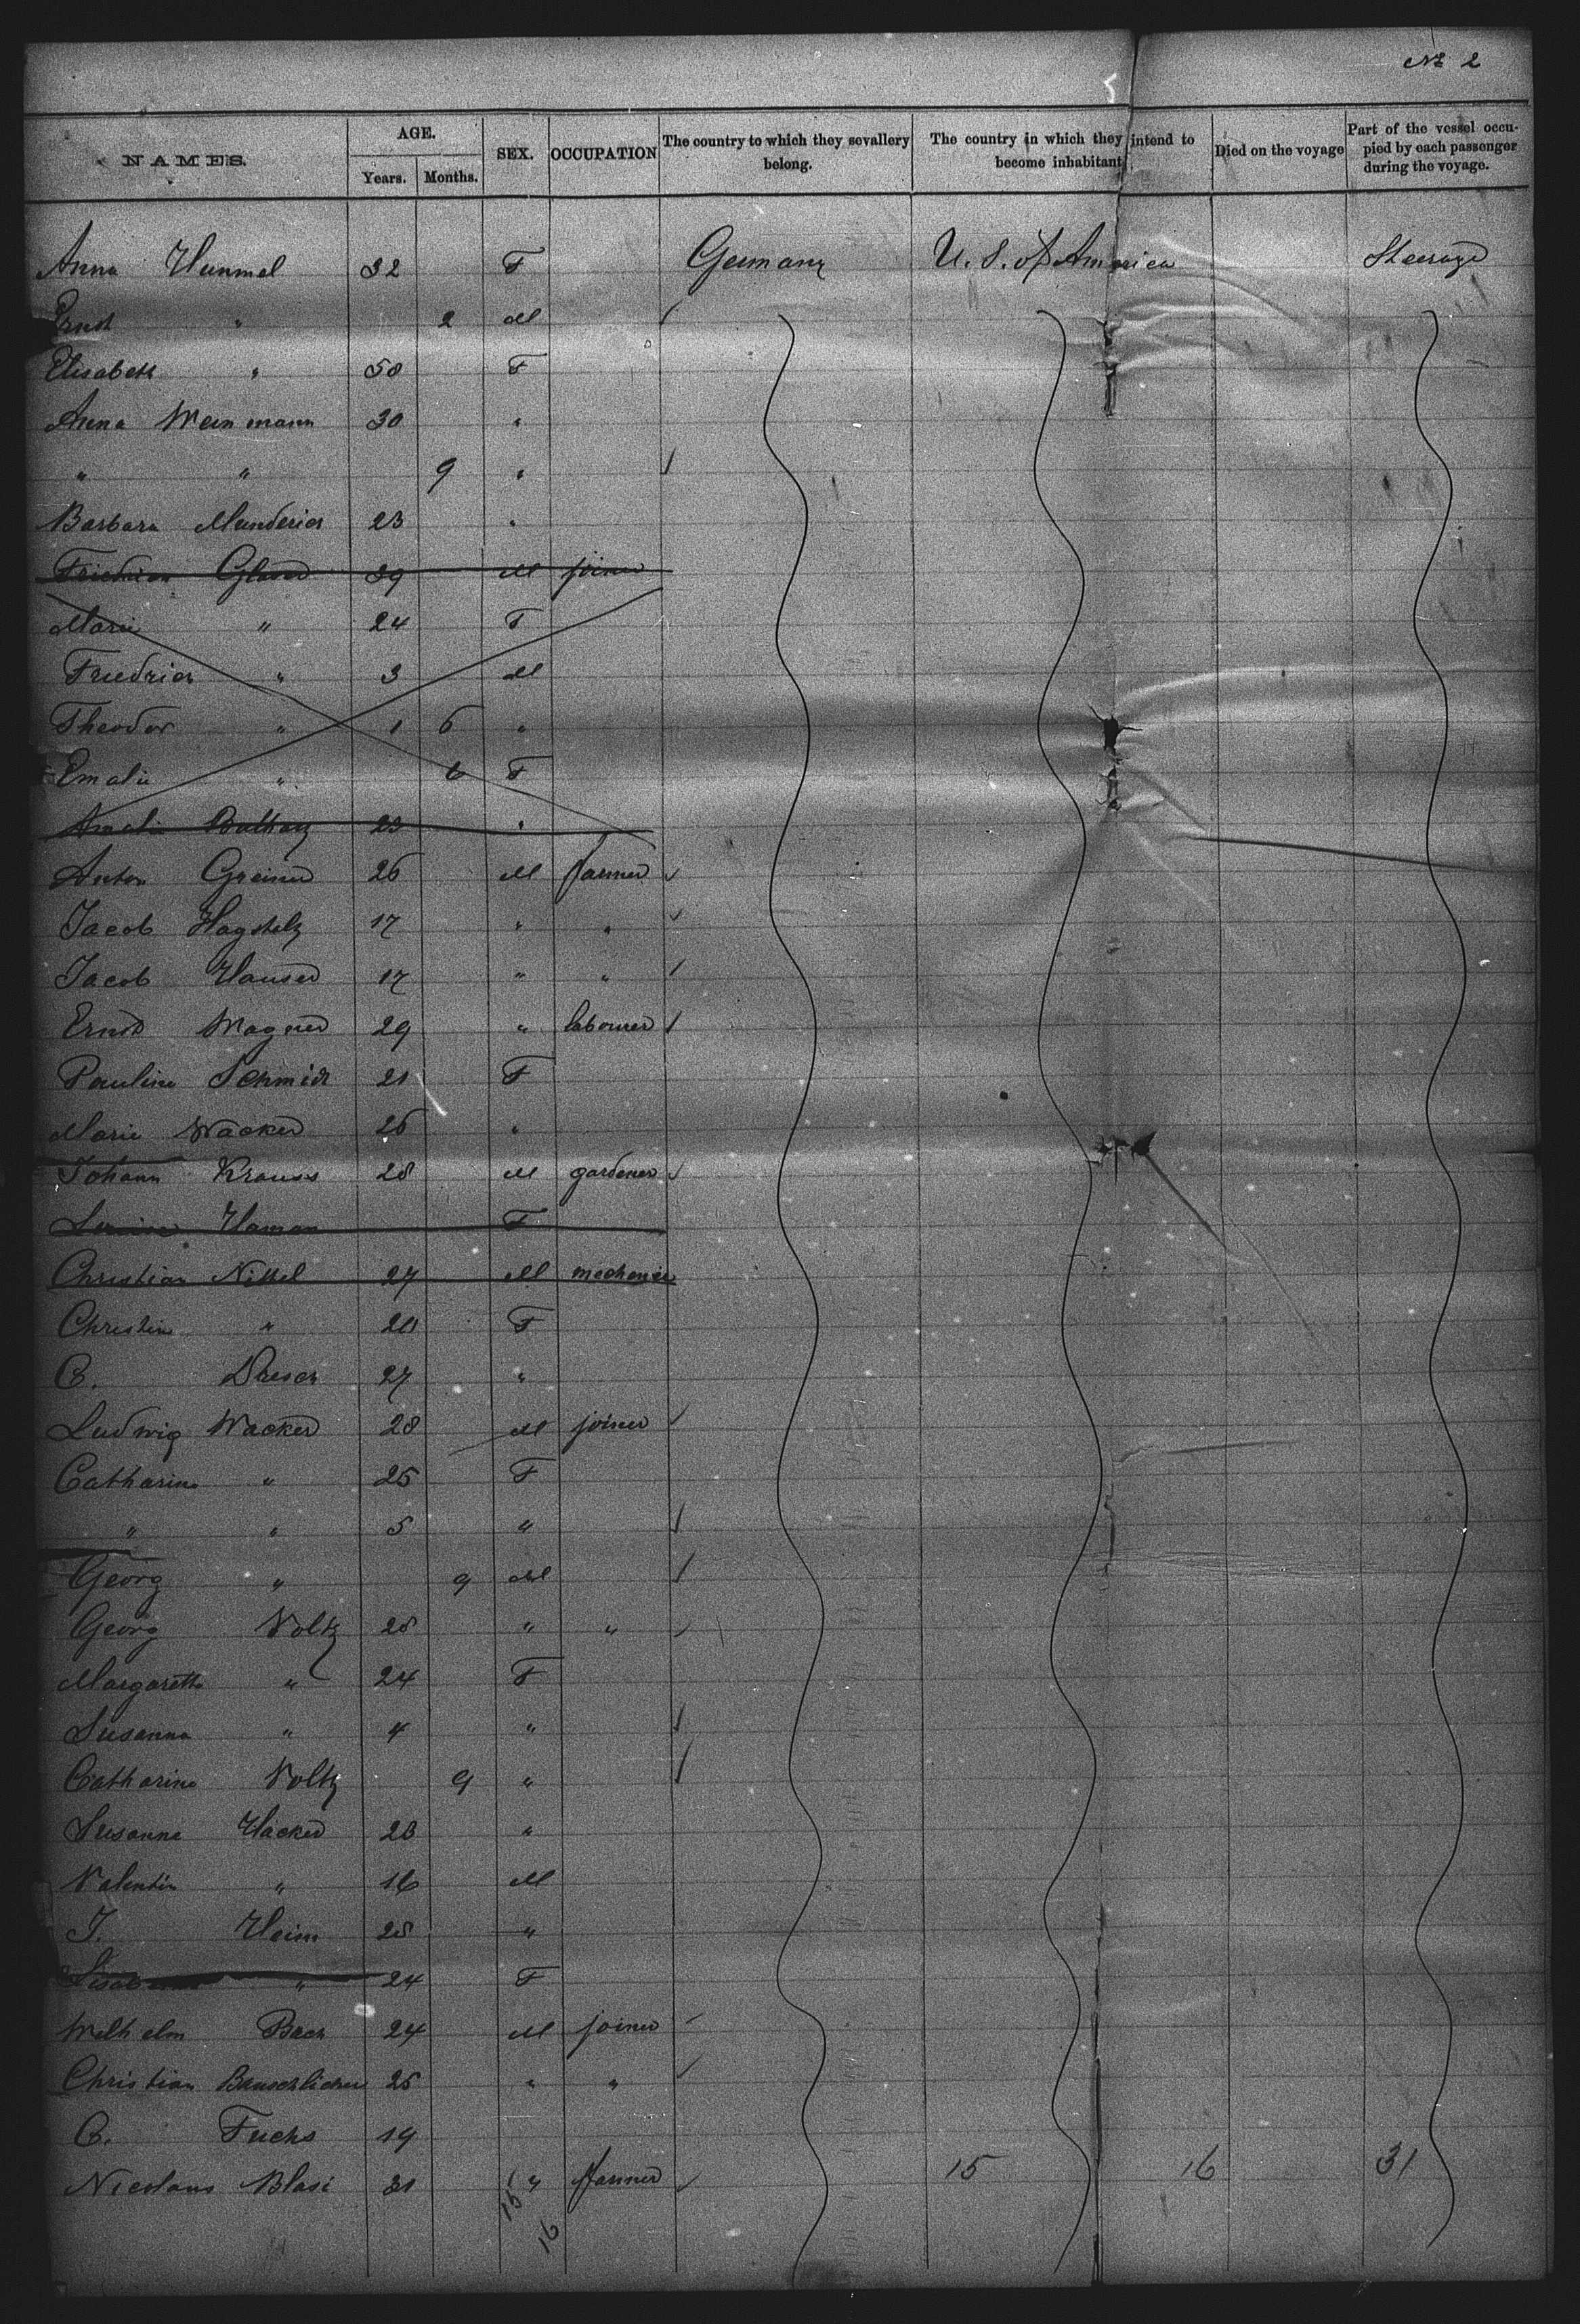 No 2
NAMES. AGE. Years. Months. SEX. OCCUPATION The country to which they sevallery belong. The country in which they intend to become inhabitant Died on the voyage Part of the vessel occupied by each passenger during the voyage.
Anna Hummel 32 F Germany U. S. of America Steerage
Ernst " 2 M
Elisabeth " 50 F
Anna Weinmann 30 "
" " 9 "
Barbara Munderich 23 "
Friedrich Glaser 39 M joiner
Marie " 24 F
Friedrich " 3 M
Theodor " 1 6 "
Emalie " 6 F
Amalie 23 "
Anton Greiner 26 M farmer
Jacob Hagstolz 17 " "
Jacob Hauser 17 " "
Ernst Wagner 29 " labourer
Pauline Schmidt 21 F
Marie Wacker 26 "
Johann Krauss 28 M gardener
Haman F
Christian Nittel 27 M mechanic
Christine " 20 F
C. Dresch 27 "
Ludwig Wacker 28 M joiner
Catharine " 25 F
" " 5 "
Georg " 9 M
Georg Voltz 28 " "
Margaretha " 24 F
Susanna " 4 "
Catharine Voltz 9 "
Susanne Hacker 23 "
Valentin " 16 M
J. Heim 28 "
" 24 F
Wilhelm Bach 24 M joiner
Christian Bauschlicher 25 " "
C. Fuchs 19
Nicolaus Blasi 31 " farmer 15 16 31
15
16